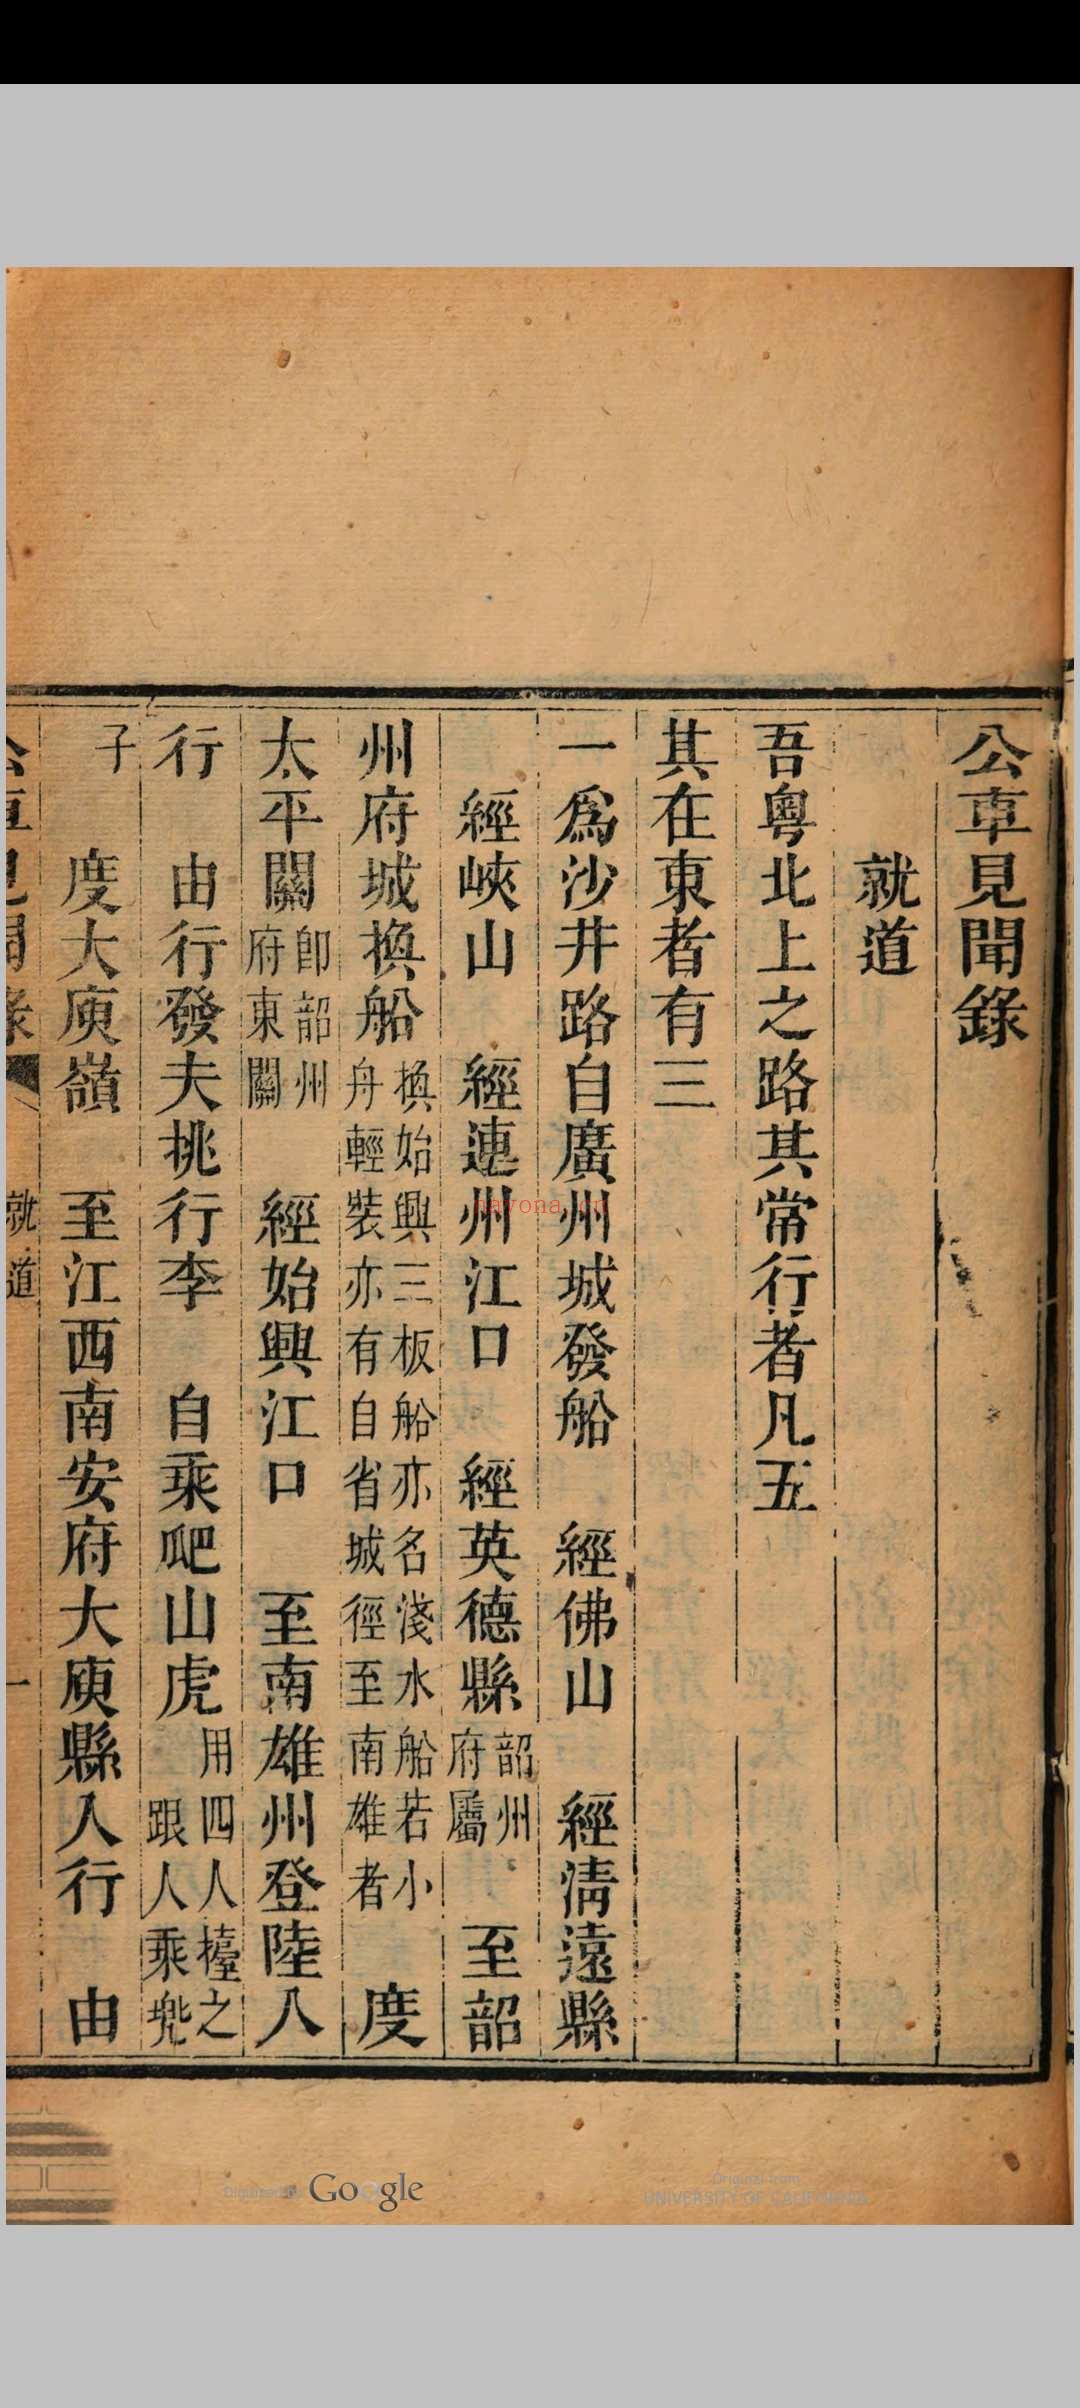 公車見聞錄
就道
吾粵北上之路其常行者凡五
其在東者有三
一爲沙井路自廣州城發船　經佛山　經淸遠縣
經峽山　經連州江口　經英德縣韶州府屬　至韶
州府城換船換始興三板船亦名淺水船若小舟輕裝亦有自省城徑至南雄者　度
太平關卽韶州府東關　經始興江口　至南雄州登陸入
行　由行發夫挑行李　自乘爬山虎用四人擡之跟人乘兠
子　度大庾嶺　至江西南安府大庾縣入行　由
公車見聞錄　就道　一
nayona.cn
Digitized by Google
Original from
UNIVERSITY OF CALIFORNIA